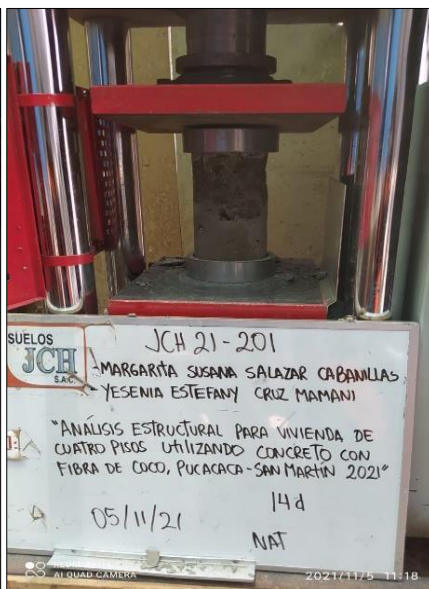 SUELOS
JCH
S.A.C.
JCH 21-201
-MARGARITA SUSANA SALAZAR CABANILLAS
- YESENIA ESTEFANY CRUZ MAMANI
"ANÁLISIS ESTRUCTURAL PARA VIVIENDA DE
CUATRO PISOS UTILIZANDO CONCRETO CON
FIBRA DE COCO, PUCACACA-SAN MARTÍN 2021"
14d
05/11/21
NAT
AI QUAD CAMERA
2021/11/5 11:18